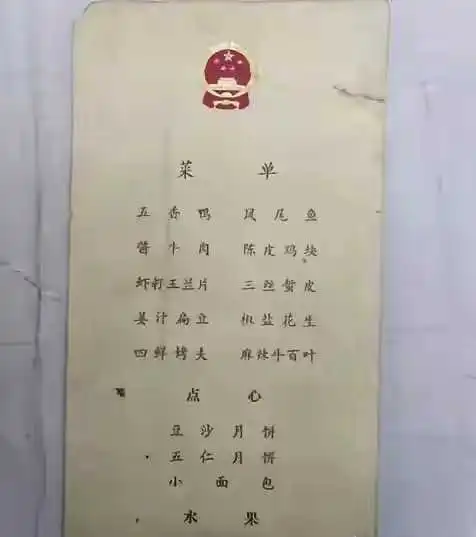 菜单
五香鸭 凤尾鱼
酱牛肉 陈皮鸡块
虾打玉兰片 三丝蜇皮
姜汁扁豆 椒盐花生
四鲜烤夫 麻辣牛百叶
点心
豆沙月饼
五仁月饼
小面包
水果